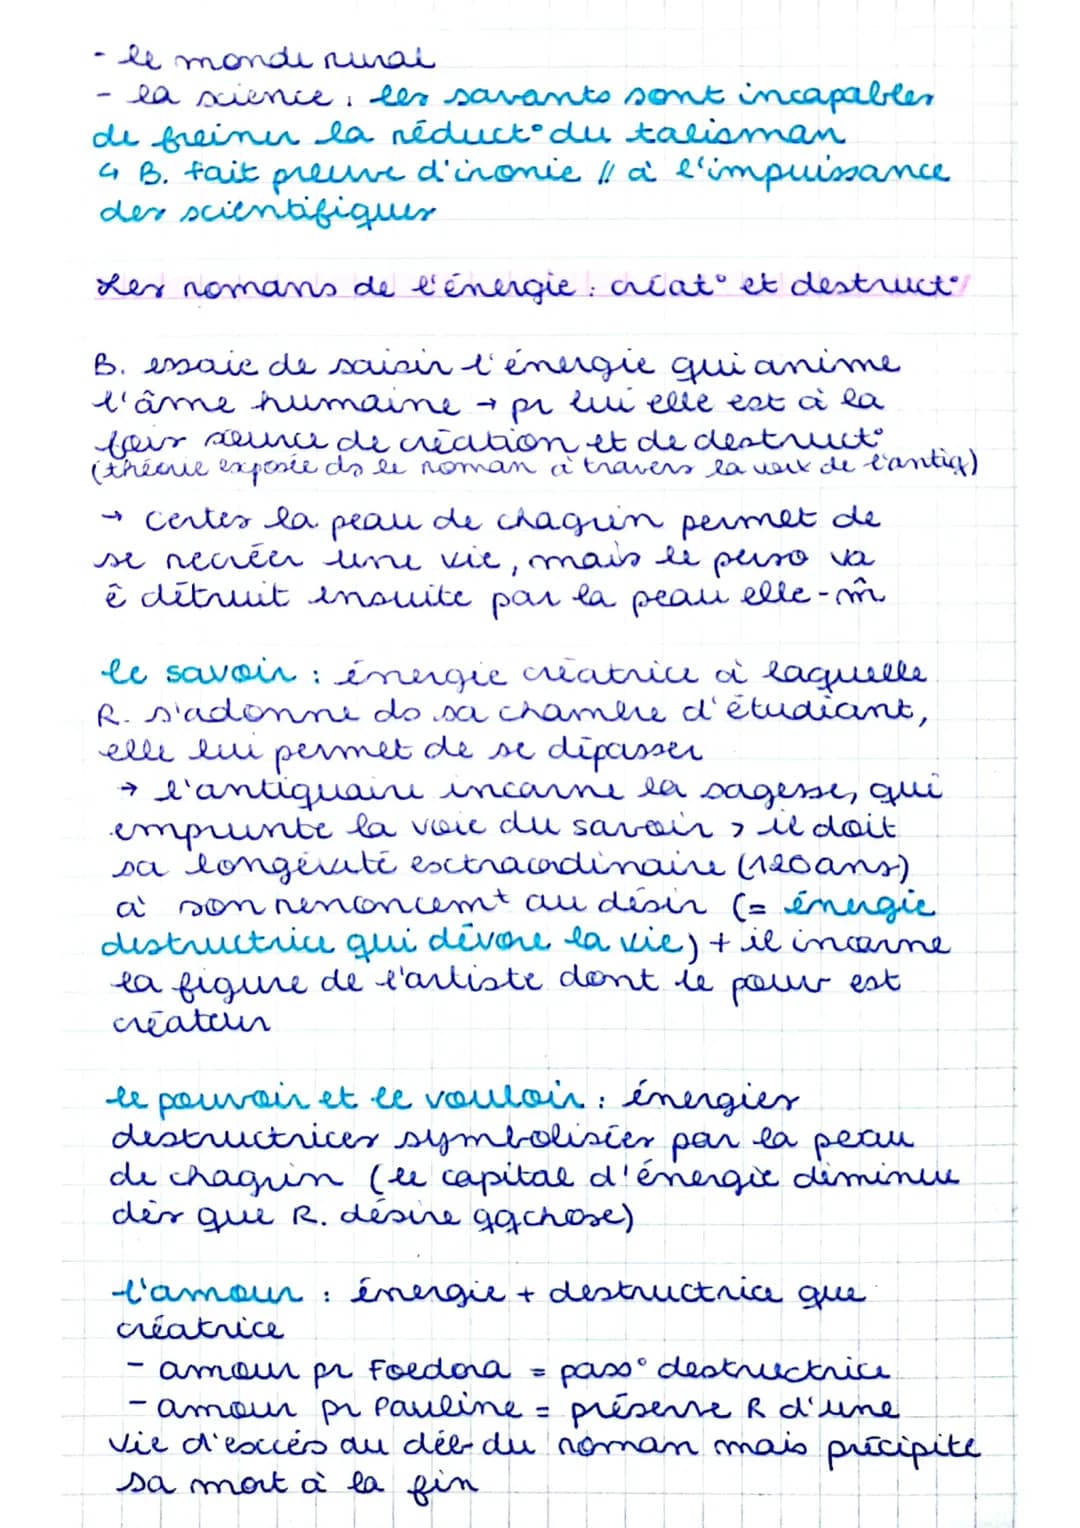 - le monde rural
- la science : les savants sont incapables
de freiner la réduct° du talisman
↳ B. fait preuve d'ironie // à l'impuissance
des scientifiques
Les romans de l'énergie : créat° et destruct°
B. essaie de saisir l'énergie qui anime
l'âme humaine → pr lui elle est à la
fois source de création et de destruct°
(théorie exposée ds le roman à travers la voix de l'antiq)
→ certes la peau de chagrin permet de
se recréer une vie, mais le perso va
ê détruit ensuite par la peau elle-m̂
le savoir : énergie créatrice à laquelle
R. s'adonne ds sa chambre d'étudiant,
elle lui permet de se dépasser
→ l'antiquaire incarne la sagesse, qui
emprunte la voie du savoir > il doit
sa longévité esctraordinaire (120 ans)
à son renoncemt au désir (= énergie
destructrice qui dévore la vie) + il incarne
la figure de l'artiste dont le pouvr est
créateur
le pouvoir et le vouloir : énergies
destructrices symbolisées par la peau
de chagrin (le capital d'énergie diminue
dès que R. désire qqchose)
l'amour : énergie + destructrice que
créatrice
- amour pr Foedora = pass° destructrice
- amour pr Pauline = préserve R d'une
vie d'excès au déb du roman mais précipite
sa mort à la fin